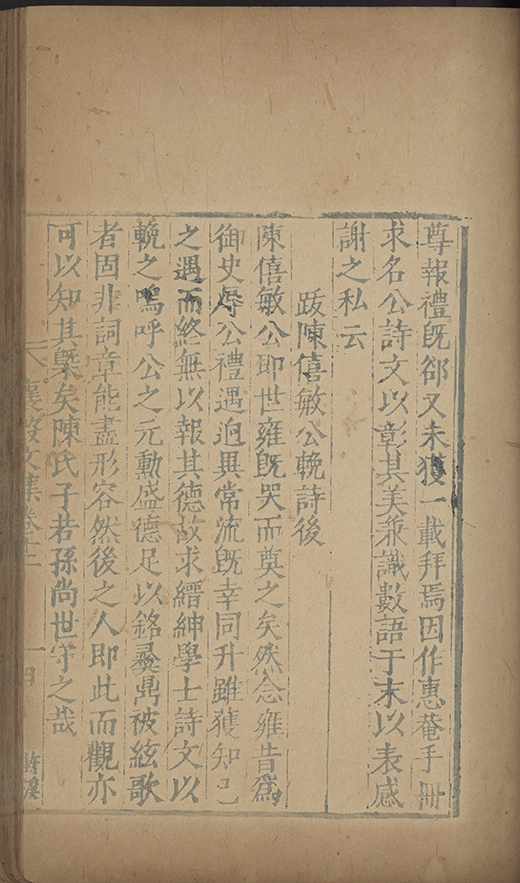 尊報禮旣郤又未獲一載拜焉因作惠菴手冊
求名公詩文以彰其美兼識數語于末以表感
謝之私云
跋陳僖敏公輓詩後
陳僖敏公卽世雍旣哭而奠之矣然念雍昔爲
御史辱公禮遇逈異常流旣幸同升雖獲知己
之遇而終無以報其德故求縉紳學士詩文以
輓之嗚呼公之元勳盛德足以銘彝鼎被絃歌
者固非詞章能盡形容然後之人即此而觀亦
可以知其槩矣陳氏子若孫尚世守之哉
襄毅文集卷十二